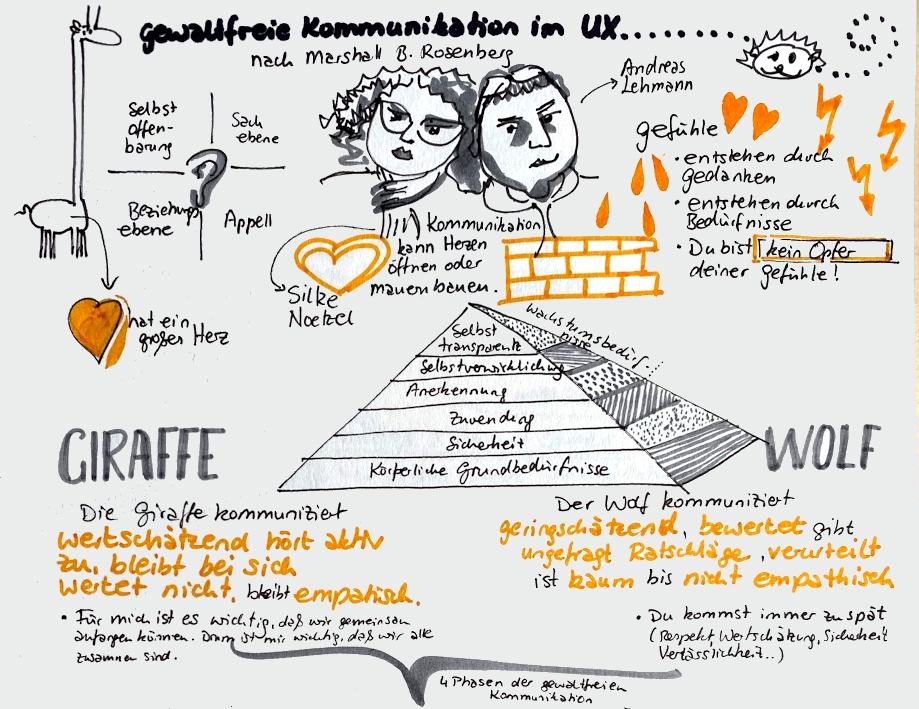 gewaltfreie Kommunikation im UX......
nach Marshall B. Rosenberg
Andreas
Lehmann
Selbst
offen-
barung
Sach
ebene
Beziehungs
ebene
Appell
gefühle
• entstehen durch
gedanken
• entstehen durch
Bedürfnisse
• Du bist kein Opfer
deiner gefühle!
Kommunikation
kann Herzen
öffnen oder
mauern bauen.
Silke
Noetzel
hat ein
großes Herz
Wachstumsbedürf...
nisse
Selbst
transparente
Selbstverwirklichung
Anerkennung
Zuwendung
Sicherheit
Körperliche Grundbedürfnisse
GIRAFFE
WOLF
Die Giraffe kommuniziert
wertschätzend hört aktiv
zu, bleibt bei sich
wertet nicht, bleibt empatisch.
• Für mich ist es wichtig, daß wir gemeinsam
anfangen können. Drum ist mir wichtig, daß wir alle
zusammen sind.
Der Wolf kommuniziert
geringschätzend, bewertet gibt
ungefragt Ratschläge, verurteilt
ist kaum bis nicht empathisch
• Du kommst immer zu spät
(Respekt, Wertschätzung, Sicherheit
Verlässlichkeit..)
4 Phasen der gewaltfreien
Kommunikation